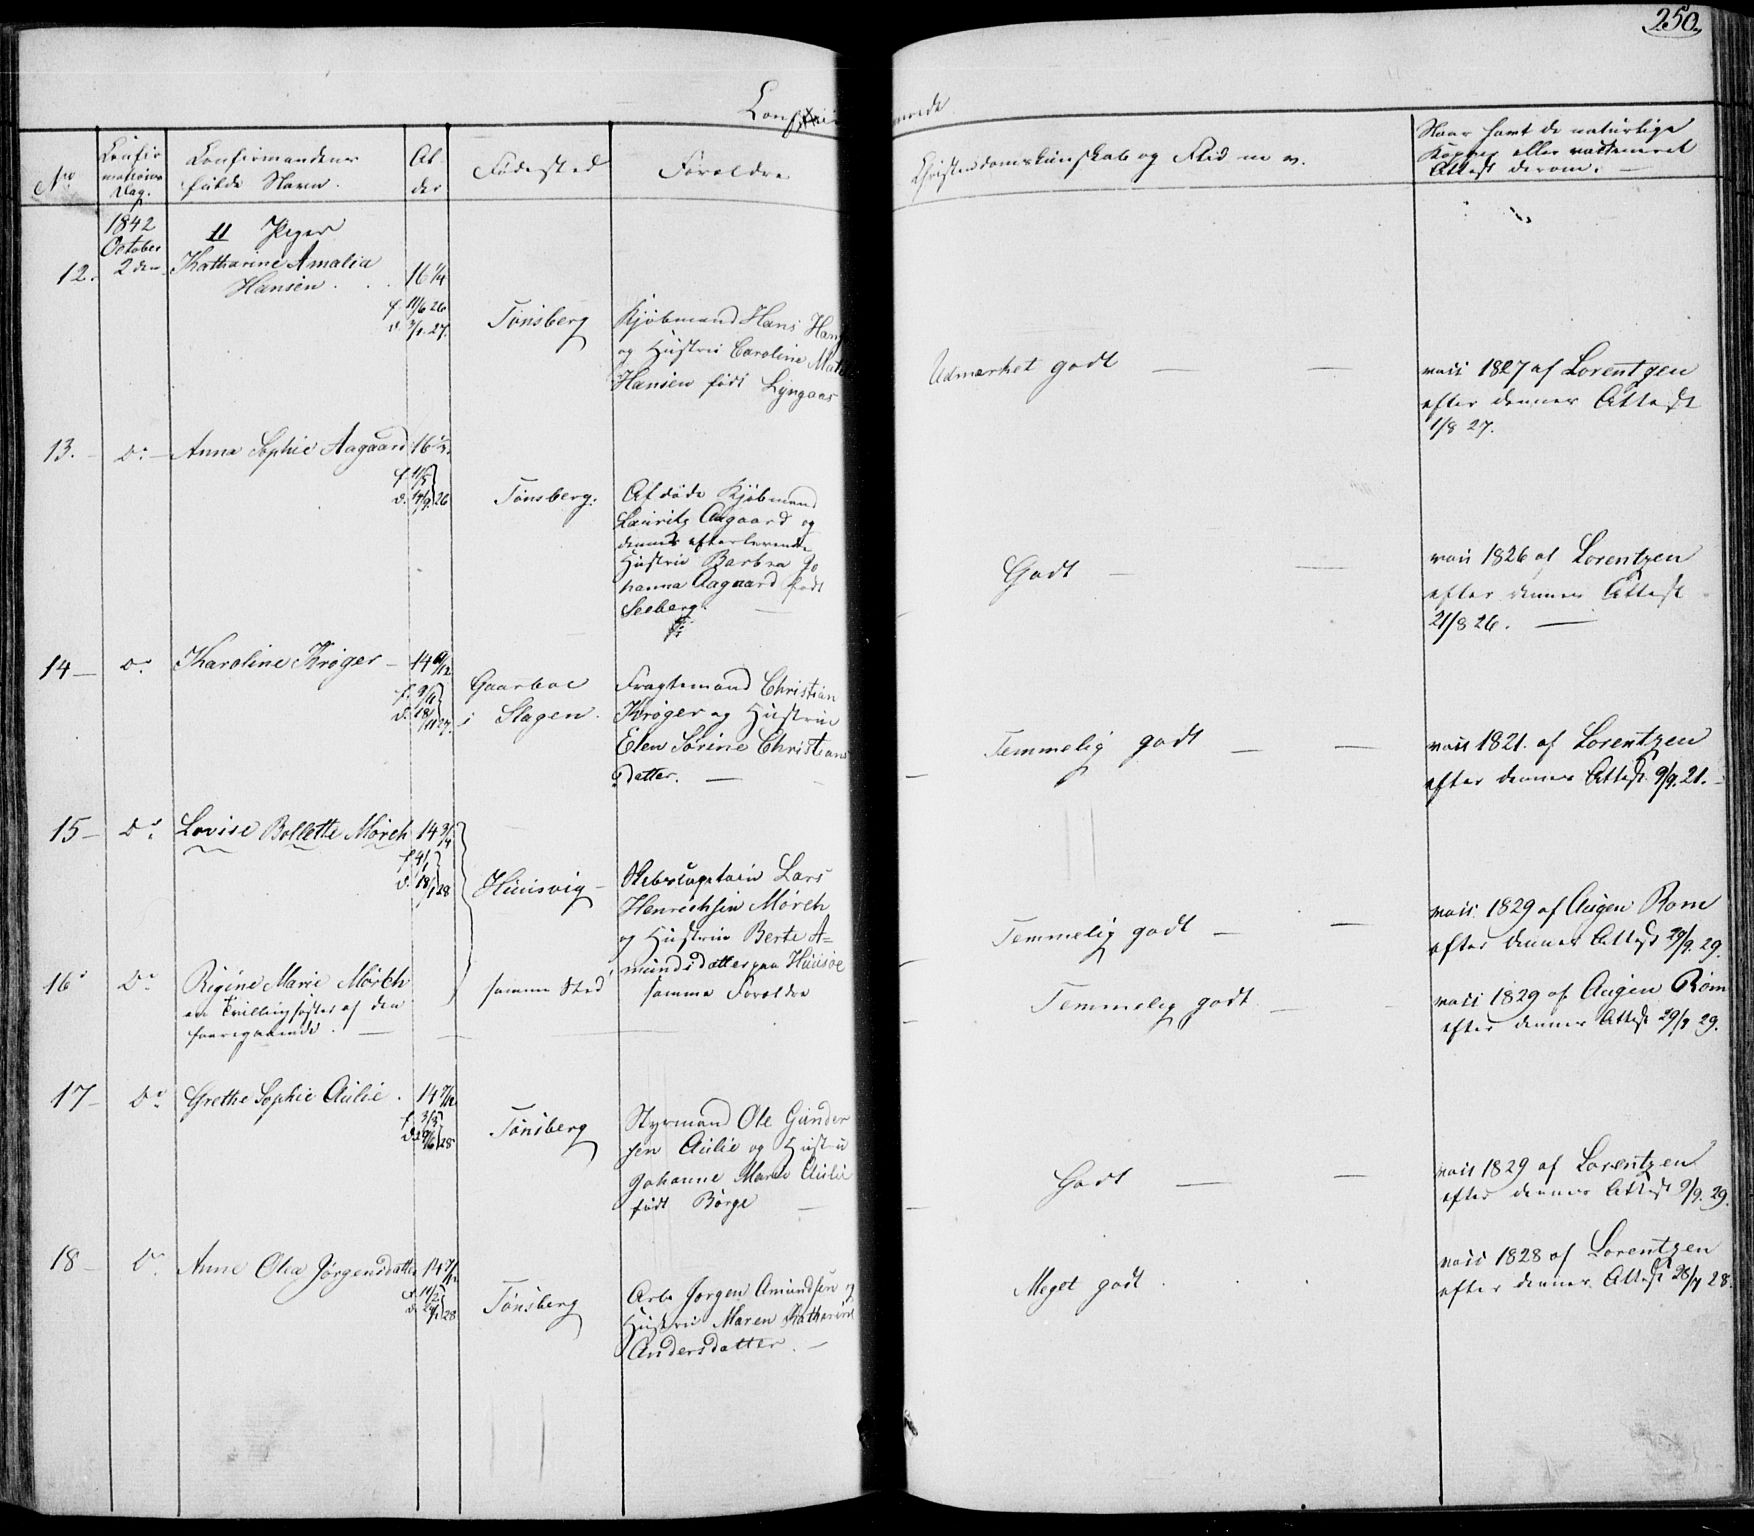 250.
Confir merede
No
Confirmations Dag.
Confirmandens fulde Navn.
Alder
Fødested
Forældre
Christendomskundskab og Flid m. v.
Naar havt de naturlige Kopper eller vaccineret Attest derom.
1842 October
II Piger
12. 2den Katharine Amalia Hansen 16 1/4
f. 11/6 26
Tønsberg
Kjøbmand Hans Hans
og Hustru Caroline
Hansen født Lyngaas
Udmærket godt
vacc 1827 af Lorentzen
efter dennes Attest
1/8 27.
13. Do Anna Sophie Aagaard 16 1/2
26
Tønsberg.
Afdøde Kjøbmand
Lauritz Aagaard og
dennes efterlevende
Hustru Barbra Jo
hanna Aagaard født
Seeberg.
Godt
vacc 1826 af Lorentzen
efter dennes Attest
21/8 26.
14 Do Karoline Krøger 14
18/11 27.
Gaarboe
i Slagen.
Fragtemand Christian
Krøger og Hustrue
Elen Sørine Christians
Datter.
Temmelig godt
vacc 1821. af Lorentzen
efter dennes Attest 9/9. 21.
15 Do Lovise Bollette Mørch 14 3/4
28
Huusvig
Skibscapetain Lars
Henrichsen Mørch
og Hustrue Berte A=
mundsdatter paa Huusøe
Temmelig godt
vacc. 1829 af Augen Rom
efter dennes Attest 29/9. 29.
16 Do Rigine Marie Mørch
en Tvillingsøster af den
foregaaende.
samme Sted
samme Forældre
Temmelig godt
vacc 1829 af Augen Rom
efter dennes Attest 29/9 29.
17 Do Grethe Sophie Aulie. 14
28
Tønsberg
Styrmand Ole Gunder
sen Aulie og Hustru
Johanne Marie Aulie
født Börge
Godt
vacc 1829 af Lorentzen
efter dennes Attest 9/9. 29.
18 Do Anne Olea Jørgensdatter 14
28
Tønsberg
Arb. Jørgen Amundsen og
Hustru Maren Katharine
Andersdatter.
Meget godt
vacc 1828 af Lorentzen
efter dennes Attest 28/9 28.